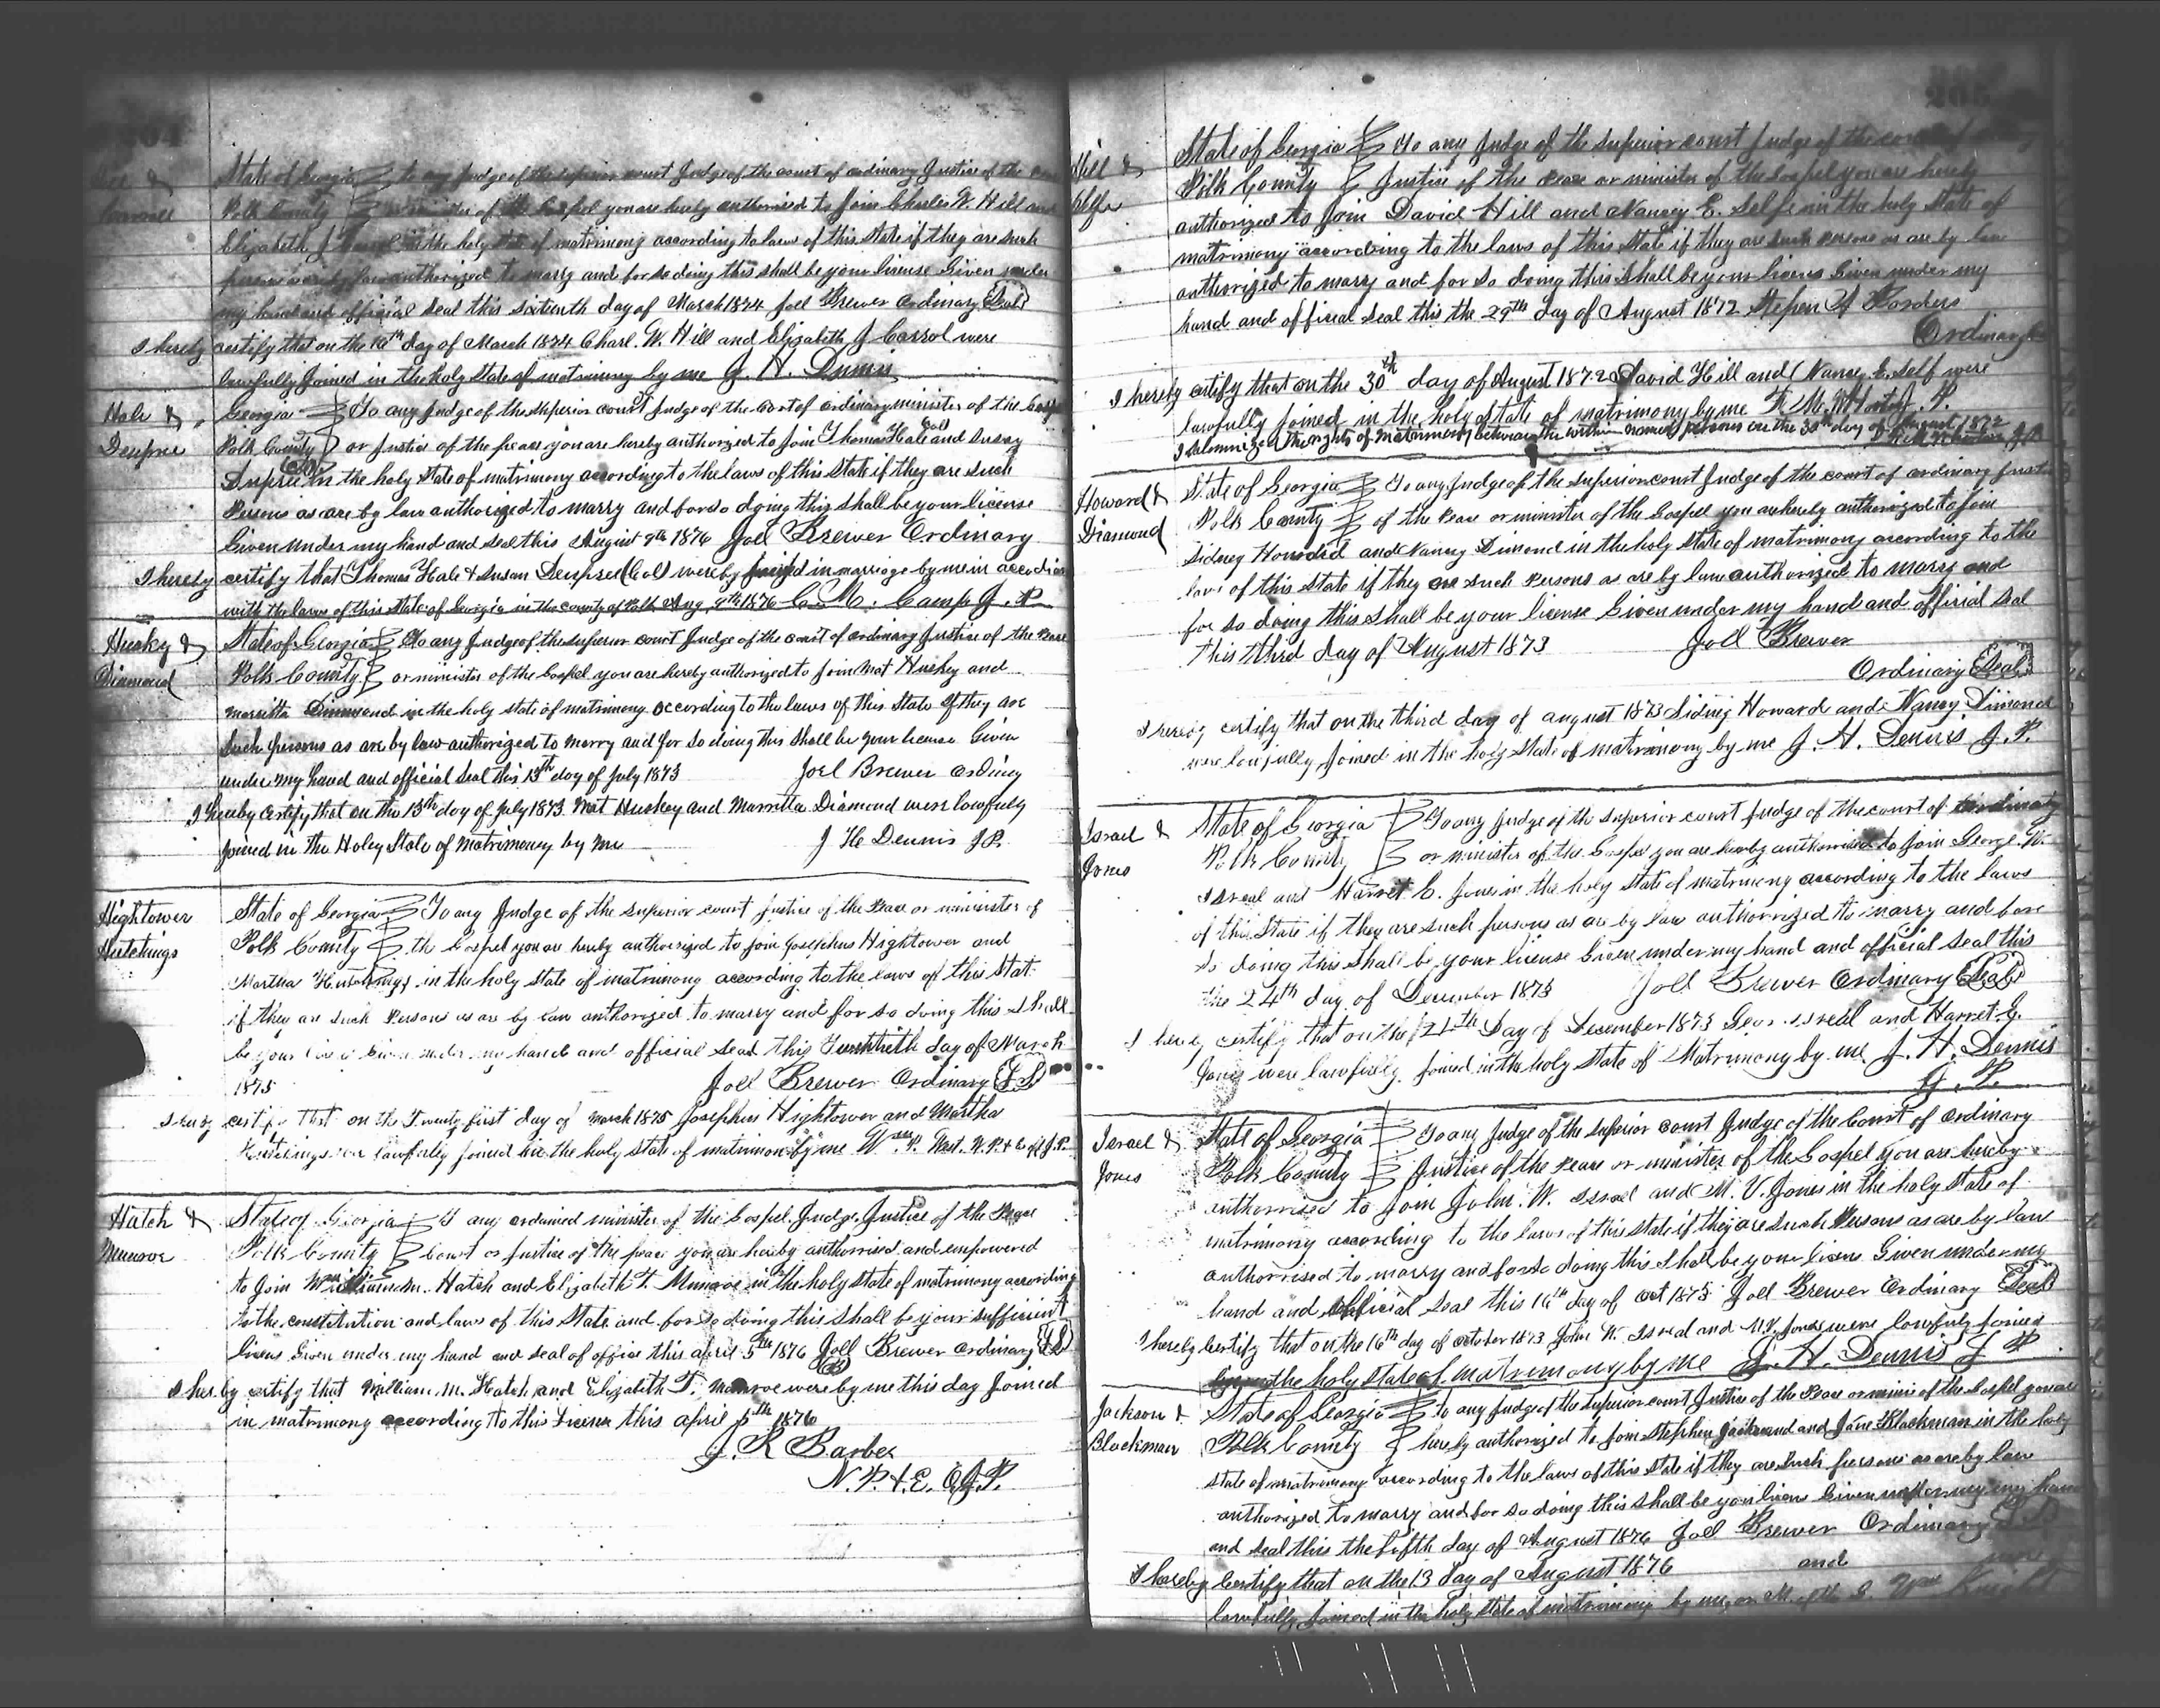 204
Hill &
State of Georgia To any Judge of the superior court Judge of the court of ordinary Justice of the
Polk County or minister of the Gospel you are hereby authorised to Join Charles W. Hill and
Elizabeth J in the holy state of matrimony according to laws of this State if they are such
persons as are by law authorized to marry and for so doing this shall be your license Given under
my hand and official seal this sixteenth day of March 1874 Joel Brewer Ordinary Seal
I hereby certify that on the 16th day of March 1874 Charl. W. Hill and Elizabeth J Carrol were
lawfully Joined in the holy State of matrimony by me J. H. Dennis
Hale &
Georgia To any Judge of the superior court Judge of the Cort of ordinary minister of the Gospel
Dempsie
Polk County or Justice of the peace you are hereby authorized to Join Thomas Hale Col and Susay
Col in the holy State of matrimony according to the laws of this State if they are such
Persons as are by law authorized to marry and for so doing this shall be your license
Given under my hand and seal this August 9th 1876 Joel Brewer Ordinary
I hereby certify that Thomas Hale & Susan Dempsee (Col) were by Joined in marriage by me in
with the laws of this State of Georgia in the county of Polk Aug. 9th 1876 C. M. Camp J. P.
Husky &
State of Georgia To any Judge of the superior court Judge of the court of ordinary Justice of the Peace
Diamond
Polk County or minister of the Gospel you are hereby authorized to Join Mat Huskey and
Marritta Dimmond in the holy state of matrimony according to the laws of this State If they are
Such persons as are by law authorized to marry and for so doing this Shall be your license Given
under my hand and official seal this 13th day of July 1873 Joel Brewer Ordiny
I hereby certify that on the 13th day of July 1873 Mat Huskey and Marretta Diamond were lawfuly
Joined in the Holey State of Matrimoney by me J H Dennis J P.
Hightower
State of Georgia To any Judge of the superior court Justice of the Peace or minister of
Hutchings
Polk County the Gospel you are hereby authorized to Join Josephus Hightower and
Martha Hutchings in the holy State of matrimony according to the laws of this Stat
if they are such Persons as are by law authorized to marry and for so doing this shall
be your Given under my hand and official seal this Twentieth day of March
1875 Joel Brewer Ordinary L S
certify that on the Twenty first day of March 1875 Josephus Hightower and Martha
Hutchings were lawfully Joined in the holy State of matrimony by me Wm P. West. N. P.
Hatch &
State of Georgia To any ordained minister of the Gospel, Judge, Justice of the Peace
Munroe
Polk County Court or Justice of the peace you are hereby authorised and empowered
to Join William M. Hatch and Elizabeth T. Munroe in the holy State of matrimony according
to the constitution and laws of this State and for so doing this Shall be your sufficient
licens Given under my hand and seal of office this April 5th 1876 Joel Brewer Ordinary L S
I hereby certify that William M. Hatch and Elizabeth T. Monroe were by me this day Joined
in matrimony according to this License this April 5th 1876
J. R Barber
N. P. & E. O J. P.
205
Hill &
State of Georgia To any Judge of the superior court Judge of the court of
Selfe
Polk County Justice of the Peace or minister of the Gospel you are hereby
authorized to Join David Hill and Nancy E. Selfe in the holy State of
matrimony according to the laws of this State if they are such Persons as are by law
authorized to marry and for so doing this shall be your licens Given under my
hand and official seal this the 29th day of August 1872 Stepen A Borders
Ordinary
I hereby certify that on the 30th day of August 1872 David Hill and Nancy E. Self were
lawfully Joined in the holy State of matrimony by me
I Solemnized the rights of Matrimony between the within named persons on the 30th day of August 1872
Howard &
State of Georgia To any Judge of the superior court Judge of the court of ordinary Just
Diamond
Polk County of the Peace or minister of the Gospel you are hereby authorized to Join
Sidney Howard and Nancy Dimond in the holy State of matrimony according to the
laws of this State if they are such Persons as are by law authorized to marry and
for so doing this shall be your license Given under my hand and official seal
this third day of August 1873 Joel Brewer
Ordinary Seal
I certify that on the third day of August 1873 Sidney Howard and Nancy Dimond
were lawfully Joined in the holy State of matrimony by me J. H. Dennis J. P.
Israel &
State of Georgia To any Judge of the superior court Judge of the court of ordinary
Jones
Polk County or minister of the Gospel you are hereby authorised to Join George W.
Isreal and Harret C. Jones in the holy State of matrimony according to the laws
of this State if they are such persons as are by law authorrized to marry and fore
So doing this Shall be your license Given under my hand and official seal this
the 24th day of December 1873 Joel Brewer Ordinary Seal
I certify that on the 24th Day of December 1873 Geor Isreal and Harret G.
Jones were lawfully Joined in the holy State of Matrimony by me J. H. Dennis
J. P.
Israel &
State of Georgia To any Judge of the superior court Judge of the Court of Ordinary
Jones
Polk County Justice of the Peace or minister of the Gospel you are hereby
authorrised to Join John. W. Isreal and M. V. Jones in the holy State of
matrimony according to the laws of this state if they are such Persons as are by law
authorrised to marry and for so doing this Shall be your licens Given under my
hand and official Seal this 16th day of Oct 1873 Joel Brewer Ordinary Seal
I hereby Certify that on the 16th day of October 1873 John W. Isreal and M.V. Jones were lawfuly Joined
the holy state of matrimony by me J. H. Dennis J P
Jackson &
State of Georgia to any Judge of the superior court Justice of the Peace or minis of the Gospel you are
Blackman
Polk County hereby authorized to Join Stephen Jackson and Jane Blackman in the holy
State of matrimony according to the laws of this State if they are such persons as are by law
authorized to marry and for so doing this shall be you licens Given under my hand
and seal this the fifth day of August 1876 Joel Brewer Ordinary L S
I hereby Certify that on the 13 day of August 1876 and
lawfully Joined in the holy State of matrimony by me